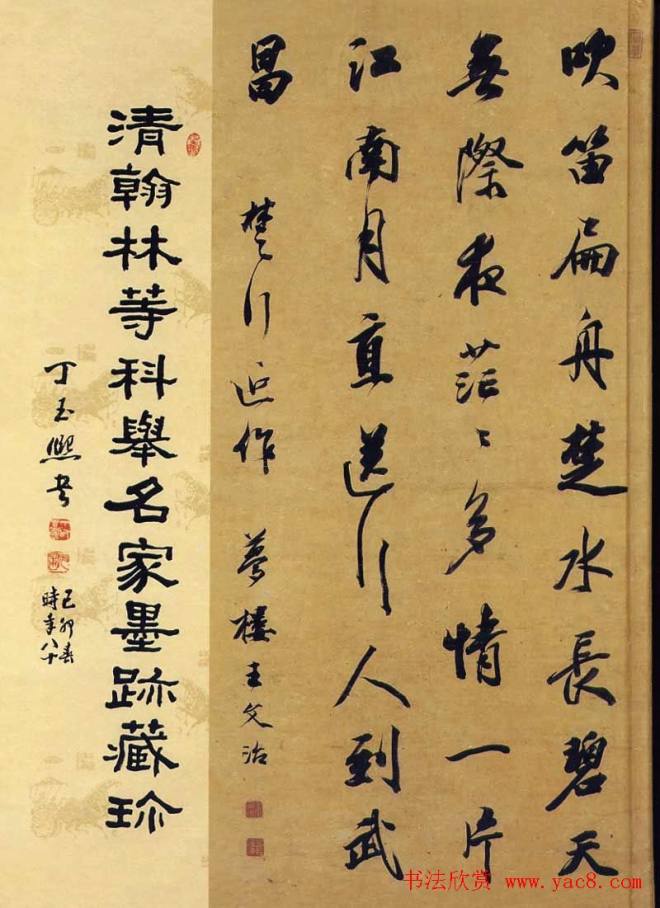 吹笛扁舟楚水長碧天
無際夜茫〻多情一片
江南月直送行人到武
昌
楚行近作 夢樓王文治
清翰林等科舉名家墨跡藏珎
丁玉熙书
己卯春
時年八十
书法欣赏 www.yac8.com